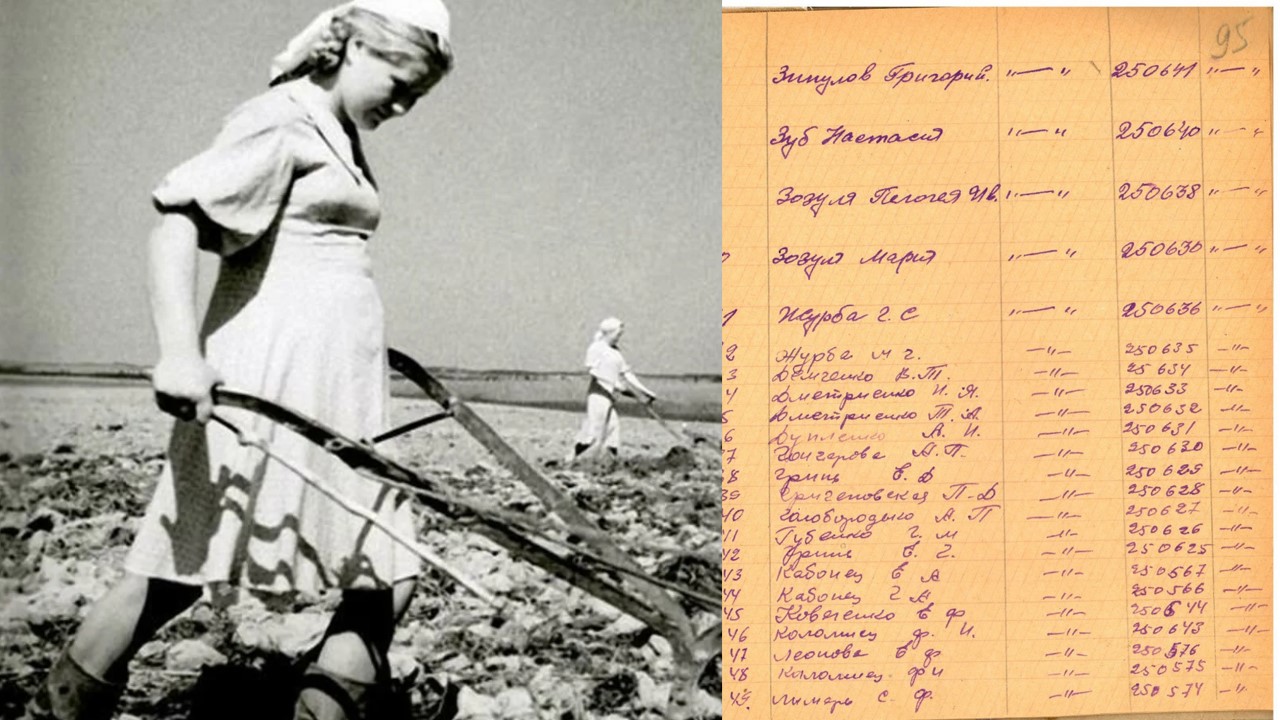 95
Зипулов Григорий. "—" 250641 "—"
Зуб Настасия "—" 250640 "—"
Зозуля Пелагея Ив. "—" 250638 "—"
Зозуля Мария "—" 250630 "—"
Журба Г. С "—" 250636 "—"
2 Журба М Г. —"— 250635 —"—
3 Демченко В. Т. —"— 25 634 —"—
4 Дметриенко И. Я. —"— 250633 —"—
Дметриенко Т. А. —"— 250632 —"—
6 А. И. —"— 250631 —"—
7 Гончарова А. П. —"— 250630 —"—
8 Гринь Е. Д —"— 250629 —"—
39 П-Д —"— 250628 —"—
40 Голобородько А. П —"— 250627 —"—
11 Губенко Г. М —"— 250626 —"—
42 Гринь Е. Г. —"— 250625 —"—
43 Кабонец Е А —"— 250567 —"—
44 Кабонец Г А —"— 250566 —"—
45 Е Ф —"— 250644 —"—
46 Коломиец Ф. И. —"— 250643 —"—
47 Леонова Е Ф —"— 250576 —"—
48 Коломиец Ф И —"— 250575 —"—
49. Лимарь С. Ф. —"— 250574 —"—